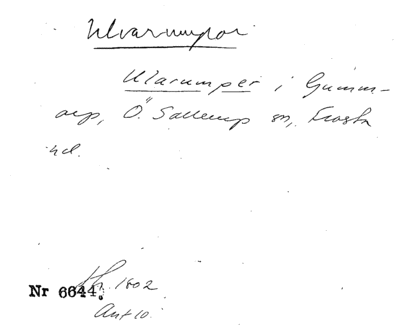 Ulvarumpor
Ularumper i Gumm-
arp, Ö. Sallerup sn, Frosta
hd.
Nr 6644. 1802
Ant 10.